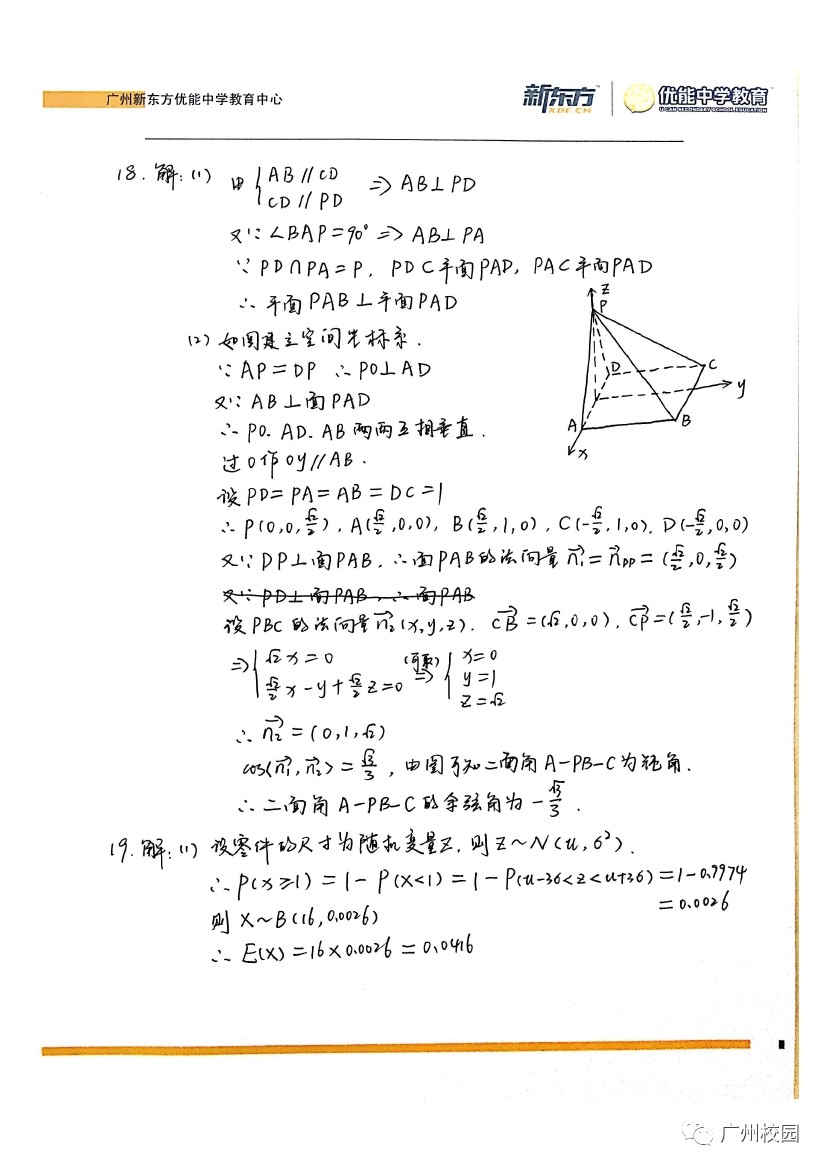 广州新东方优能中学教育中心
新东方 XDF.CN 优能中学教育 U-CAN SECONDARY SCHOOL EDUCATION
18. 解: (1) 由 { AB // CD  CD // PD ⇒ AB⊥PD
又∵ ∠BAP=90° ⇒ AB⊥PA
∵ PD∩PA=P, PD⊂平面PAD, PA⊂平面PAD
∴ 平面PAB⊥平面PAD
(2) 如图建立空间坐标系.
∵ AP=DP ∴ PO⊥AD
又∵ AB⊥面PAD
∴ PO、AD、AB两两互相垂直.
过O作OY//AB.
设PD=PA=AB=DC=1
∴ P(0,0,√2/2), A(√2/2,0,0), B(√2/2,1,0), C(-√2/2,1,0), D(-√2/2,0,0)
又∵ DP⊥面PAB, ∴面PAB的法向量 n₁=n_DP=(√2/2,0,√2/2)
又∵ PD⊥面PAB, ∴面PAB
设PBC的法向量n₂(x,y,z). CB=(√2,0,0), CP=(√2/2,-1,√2/2)
⇒ { √2x=0  √2/2x-y+√2/2z=0 (可取)⇒ { x=0  y=1  z=√2
∴ n₂=(0,1,√2)
cos<n₁,n₂>=√3/3, 由图可知二面角A-PB-C为钝角.
∴ 二面角A-PB-C的余弦角为-√3/3.
z
P
D
C
y
A
B
x
19. 解: (1) 设零件的尺寸为随机变量Z, 则Z~N(u,σ²).
∴ P(x≥1)=1-P(X<1)=1-P(u-3σ<z<u+3σ)=1-0.9974
=0.0026
则X~B(16,0.0026)
∴ E(X)=16×0.0026=0.0416
广州校园